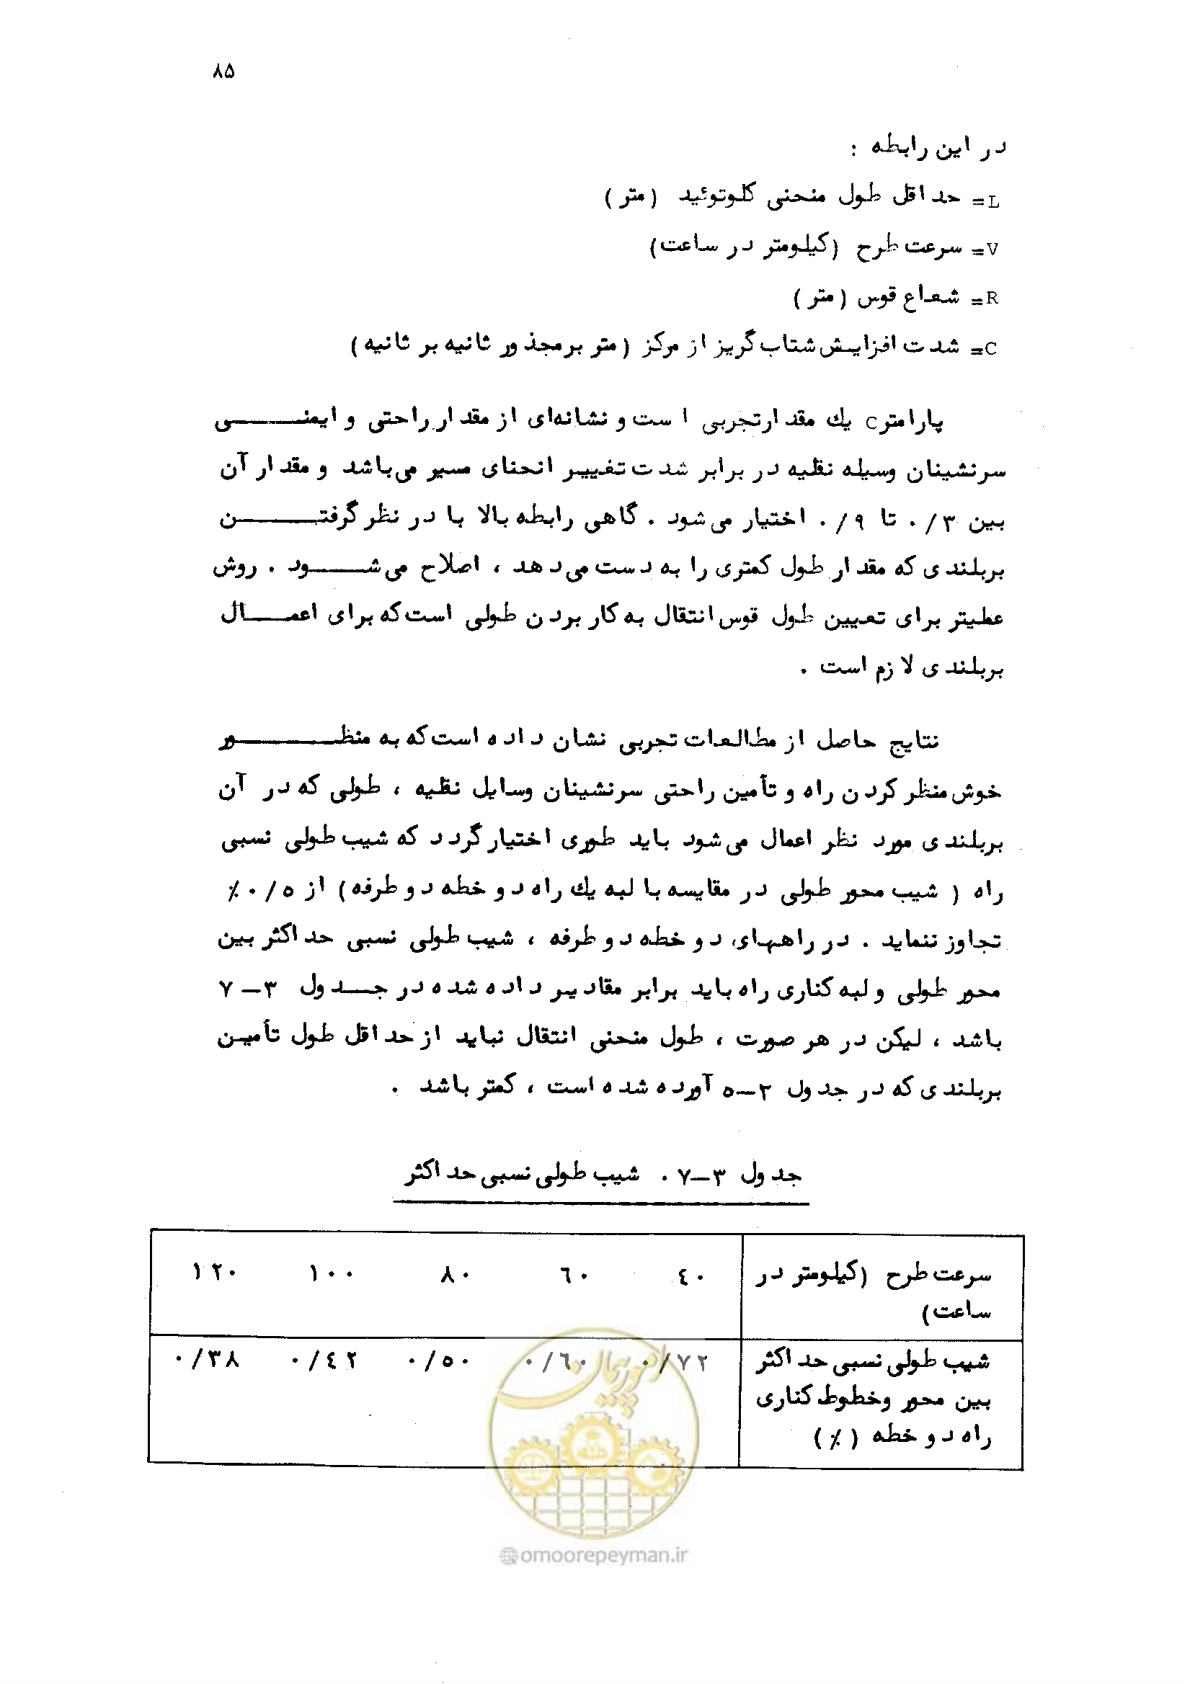 ۸۵
در این رابطه :
L= حداقل طول منحنی کلوتوئید (متر)
V= سرعت طرح (کیلومتر در ساعت)
R= شعاع قوس (متر)
C= شدت افزایش شتاب گریز از مرکز (متر بر مجذور ثانیه بر ثانیه)
پارامتر C یك مقدار تجربی است و نشانه‌ای از مقدار راحتی و ایمنی
سرنشینان وسیله نقلیه در برابر شدت تغییر انحنای مسیر می‌باشد و مقدار آن
بین ۰/۳ تا ۰/۹ اختیار می‌شود . گاهی رابطه بالا با در نظر گرفتن
بربلندی که مقدار طول کمتری را به دست می‌دهد ، اصلاح می‌شود . روش
عملیتر برای تعیین طول قوس انتقال به کار بردن طولی است که برای اعمال
بربلندی لازم است .
نتایج حاصل از مطالعات تجربی نشان داده است که به منظور
خوش منظر کردن راه و تأمین راحتی سرنشینان وسایل نقلیه ، طولی که در آن
بربلندی مورد نظر اعمال می‌شود باید طوری اختیار گردد که شیب طولی نسبی
راه ( شیب محور طولی در مقایسه با لبه یك راه دو خطه دو طرفه) از ۰/۵ ٪
تجاوز ننماید . در راههای دو خطه دو طرفه ، شیب طولی نسبی حداکثر بین
محور طولی و لبه کناری راه باید برابر مقادیر داده شده در جدول ۳-۷
باشد ، لیکن در هر صورت ، طول منحنی انتقال نباید از حداقل طول تأمین
بربلندی که در جدول ۲-۵ آورده شده است ، کمتر باشد .
جدول ۳-۷ . شیب طولی نسبی حداکثر
سرعت طرح (کیلومتر در ۴۰ ۶۰ ۸۰ ۱۰۰ ۱۲۰
ساعت)
شیب طولی نسبی حداکثر ۰/۷۲ ۰/۶۰ ۰/۵۰ ۰/۴۲ ۰/۳۸
بین محور وخطوط کناری
راه دو خطه (٪)
امور پیمان
@omoorepeyman.ir